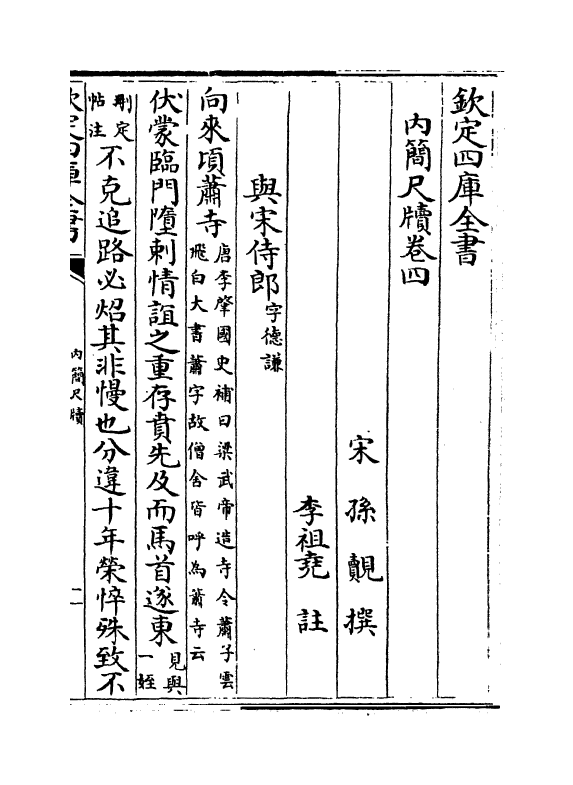 欽定四庫全書
內簡尺牘卷四
宋 孫覿 撰
李祖堯 註
與宋侍郎字德謙
向來頃蕭寺唐李肇國史補曰梁武帝造寺令蕭子雲飛白大書蕭字故僧舍皆呼為蕭寺云
伏蒙臨門墮刺情誼之重存賁先及而馬首遂東見與一姪
剛定帖注不克追路必炤其非慢也分違十年榮悴殊致不
欽定四庫全書
內簡尺牘